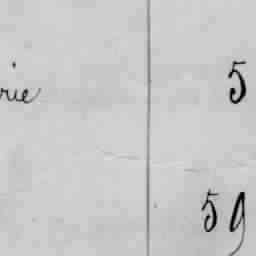 rie 5
59